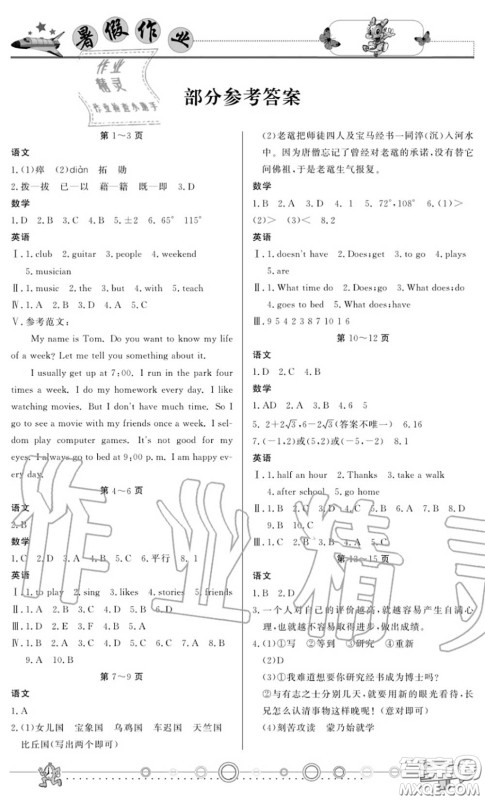 暑假作业
部分参考答案
第 1～3 页
语文
1.(1)瘁 (2)diàn 拓 勋
2.拨一拔 已一以 藉一籍 既一即 3.D
数学
1.D 2.B 3.C 4.B 5.±2 6.65° 115°
英语
Ⅰ.1. club 2. guitar 3. people 4. weekend
5. musician
Ⅱ.1. music 2. the 3. but 4. with 5. teach
Ⅳ.1.A 2.B 3.D 4.C 5.A
Ⅴ.参考范文:
My name is Tom. Do you want to know my life
of a week? Let me tell you something about it.
I usually get up at 7:00. I run in the park four
times a week. I do my homework every day. I like
watching movies. But I don't have much time. So I
go to see a movie with my friends once a week. I sel-
dom play computer games. It's not good for my
eyes. I always go to bed at 9:00 p. m. I am happy ev-
ery day.
第 4～6 页
语文
2.B
数学
1.C 2.D 3.D 4.C 5.C 6.平行 8.1
英语
Ⅰ.1. to play 2. sing 3. likes 4. stories 5. friends
Ⅱ.1.D 2.B 3.C 4.D 5.A
Ⅲ.1.A 2.B 3.C 4.C 5.D
Ⅳ.1.B 2.D 3.C 4.A 5.B 6.C 7.D 8.B
9.A 10.B
第 7～9 页
语文
1.A
2.(1)女儿国 宝象国 乌鸡国 车迟国 天竺国
比丘国(写出两个即可)
(2)老鼋把师徒四人及宝马经书一同淬(沉)入河水
中。因为唐僧忘记了曾经对老鼋的承诺,没有替它
问佛祖,于是老鼋生气报复。
数学
1.B 2.A 3.D 4.1 5.72°,108° 6.(1)>
(2)> (3)< 8.0
英语
Ⅰ.1. doesn't have 2. Does;get 3. to go 4. plays
5. are
Ⅱ.1. What time do 2. Does;go 3. What does;do
4. goes to bed 5. What does;have
Ⅲ.9 5 4 2 3 8 7 10 1 6
第 10～12 页
语文
1.D 2.C 4.B
数学
1.AD 2.A 3.B 4.A
5.2+2√3,6−2√3(答案不唯一) 6.16
7.(−1,2)或(5,2)或(5,−2) 8.1
英语
Ⅰ.1. half an hour 2. Thanks 3. take a walk
4. after school 5. go home
9.B 10.C
Ⅲ.1.B 2.D 3.A 4.C 5.D
第 13～15 页
语文
1.B 2.D
3.一个人对自己的评价越高,就越容易产生自满心
理,也就越容易阻碍进步,越难出成绩。
4.(1)①写 ②等到 ③研究 ④重新
(2)D
(3)①我难道想要你研究经书成为博士吗?
②与有志之士分别几天,就要用新的眼光看待,长
兄怎么认清事物这样晚呢!(意对即可)
(4)刻苦攻读 蒙乃始就学
作业精灵